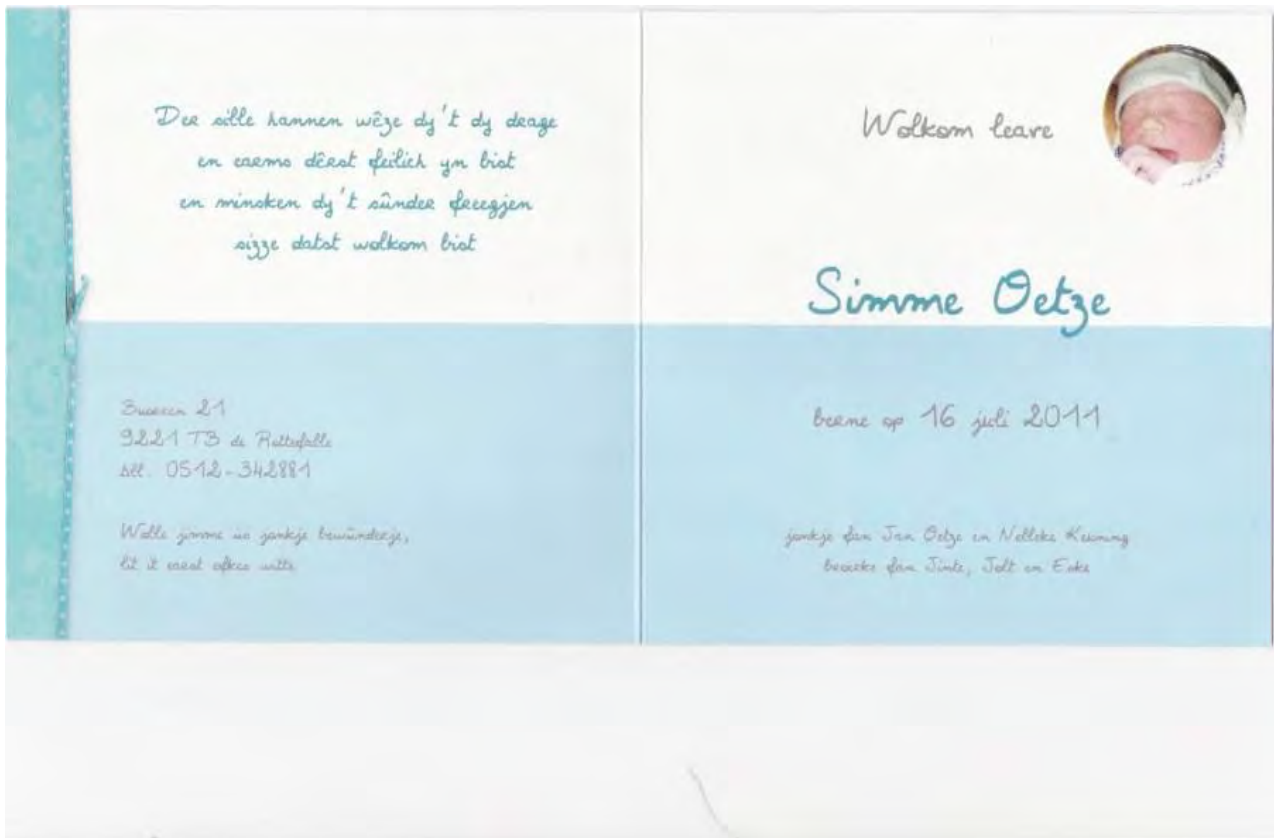 Der sille hannen wêze dy't dy drage
en earms dêrst feilich yn bist
en minsken dy't sûnder freegjen
sizze datst wolkom bist
Buorren 21
9221 TB de Rottefalle
tel. 0512-342881
Wolle jimme ús jonkje bewûnderje,
lit it earst efkes witte
Wolkom leave
Simme Oetze
berne op 16 juli 2011
jonkje fan Jan Oetze en Nelleke Keuning
broerke fan Jinte, Jelt en Eake